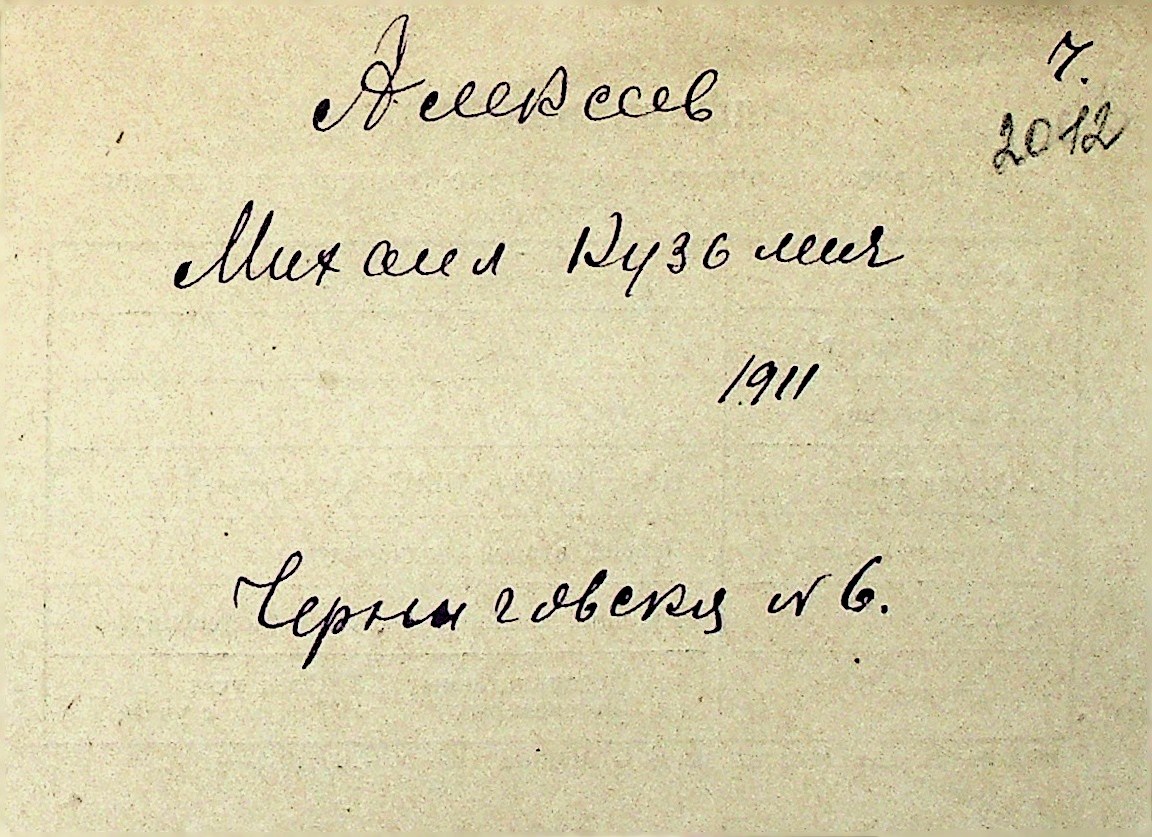 Алексеев
7.
2012
Михаил Кузьмич
1911
Черниговская N 6.